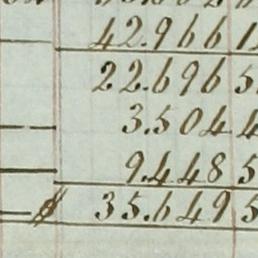 42.9661
22.6965
3.5044
9.4485
$ 35.6495